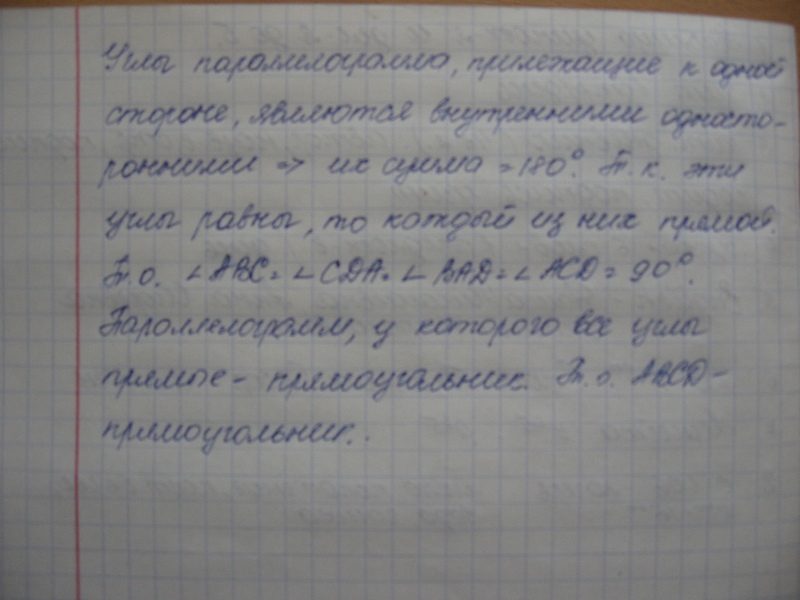 Углы параллелограмма, прилежащие к одной
стороне, являются внутренними односто-
ронними => их сумма = 180°. Т.к. эти
углы равны, то каждый из них прямой.
Т.о. ∠ABC = ∠CDA = ∠BAD = ∠ACD = 90°.
Пароллелограмм, у которого все углы
прямые - прямоугольник. Т.о. ABCD -
прямоугольник.